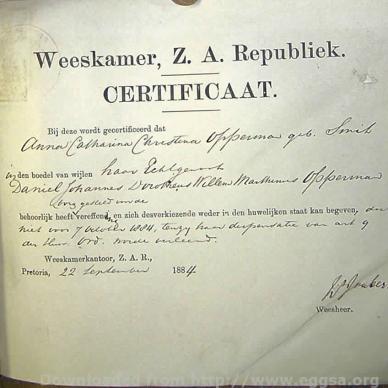 Weeskamer, Z. A. Republiek.
CERTIFICAAT.
Bij deze wordt gecertificeerd dat
Anna Catharina Christina Opperman geb. Smit
in den boedel van wijlen haar Echtgenoot
Daniel Johannes Dorotheus Willem Marthinus Opperman
behoorlijk heeft vereffend, en zich desverkiezende weder in den huwelijken staat kan begeven, doch
niet voor 7 October 1884, tenzy haar dispensatie van art 9
der Huw. Ord. worde verleend.
Weeskamerkantoor, Z. A. R.,
Pretoria, 22 September 1884
Weesheer.
Downloaded from http://www.eggsa.org